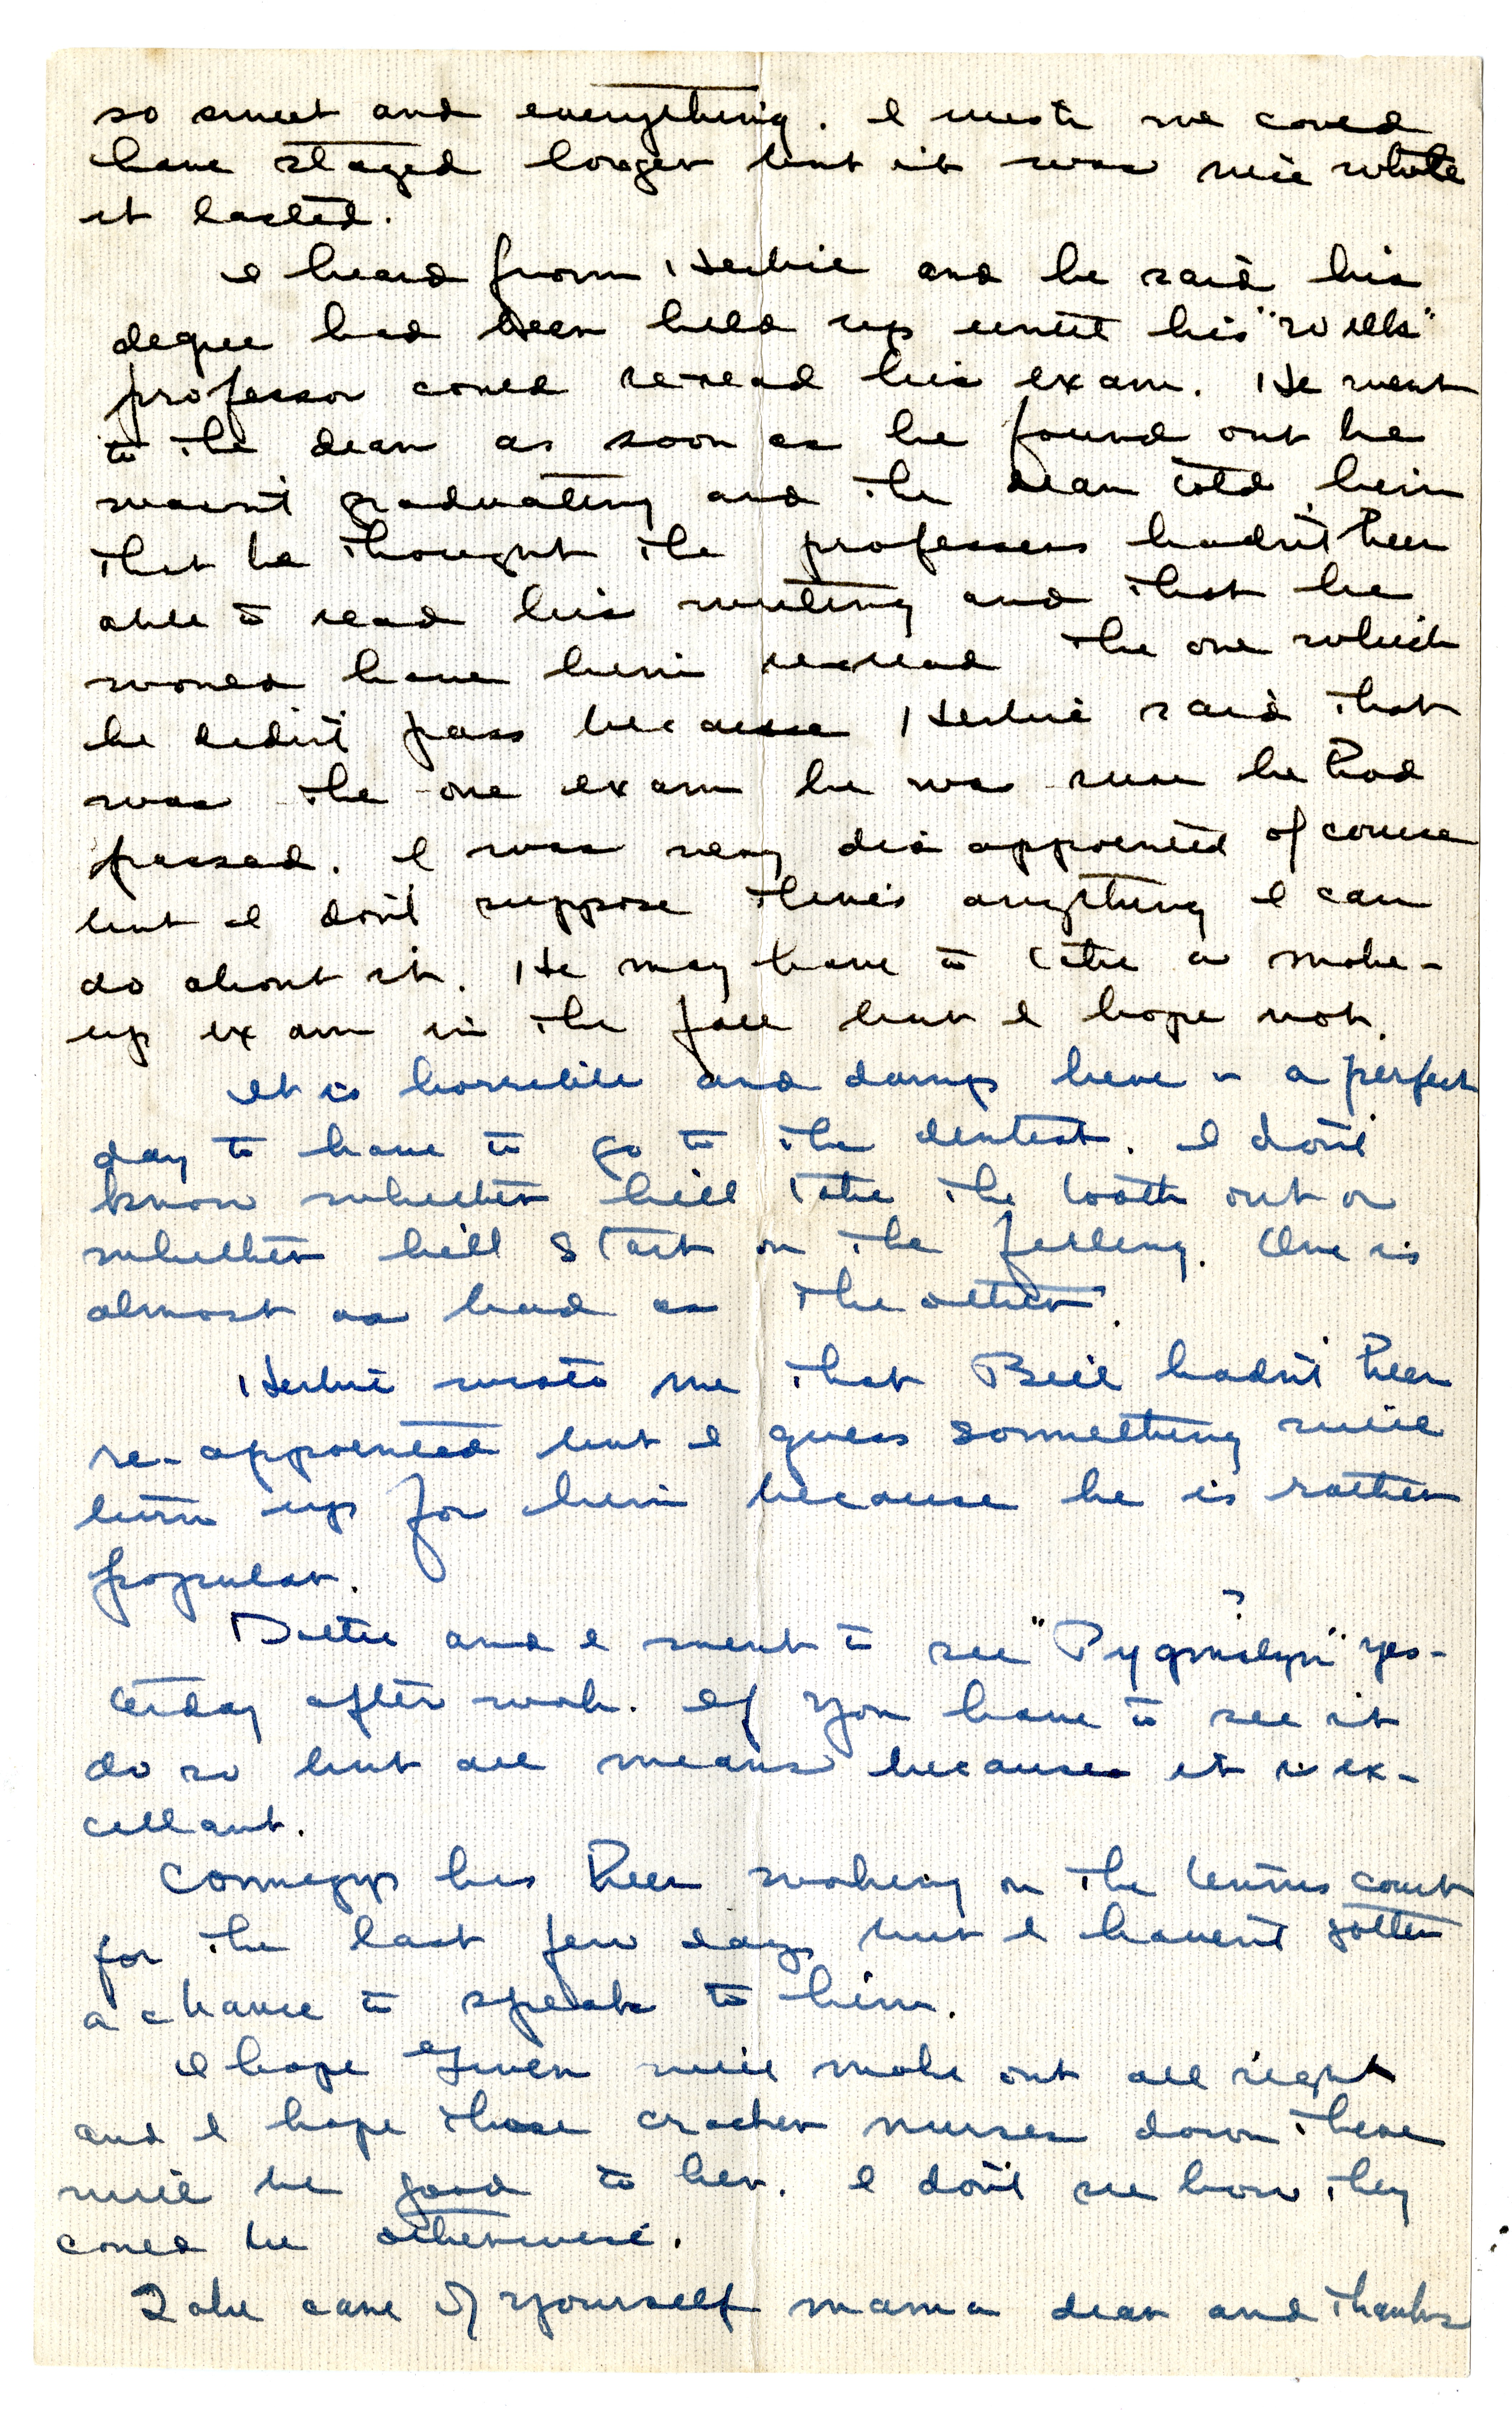 so sweet and everything. I wish we could
have stayed longer but it was nice while
it lasted.
I heard from Herbie and he said his
degree had been held up until his "Wills"
professor could re-read his exam. He went
to the dean as soon as he found out he
wasn't graduating and the dean told him
that he thought the professors hadn't been
able to read his writing and that he
would have him reread the one which
he didn't pass because Herbie said that
was the one exam he was sure he had
passed. I was very disappointed of course
but I don't suppose there's anything I can
do about it. He may have to take a make-
up exam in the fall but I hope not.
It is horrible and damp here - a perfect
day to have to go to the dentist. I don't
know whether he'll take the tooth out or
whether he'll start on the filling. One is
almost as bad as the other.
Herbie wrote me that Bill hadn't been
re-appointed but I guess something will
turn up for him because he is rather
popular.
?
Dottie and I went to see "Pygmalyn" yes-
terday after work. If you have to see it
do so but all means because it is ex-
cellant.
Comegys has been working on the tennis court
for the last few days but I haven't gotten
a chance to speak to him.
I hope Gwen will make out all right
and I hope those cracker nurses down there
will be good to her. I don't see how they
could be otherwise.
Take care of yourself mama dear and thanks